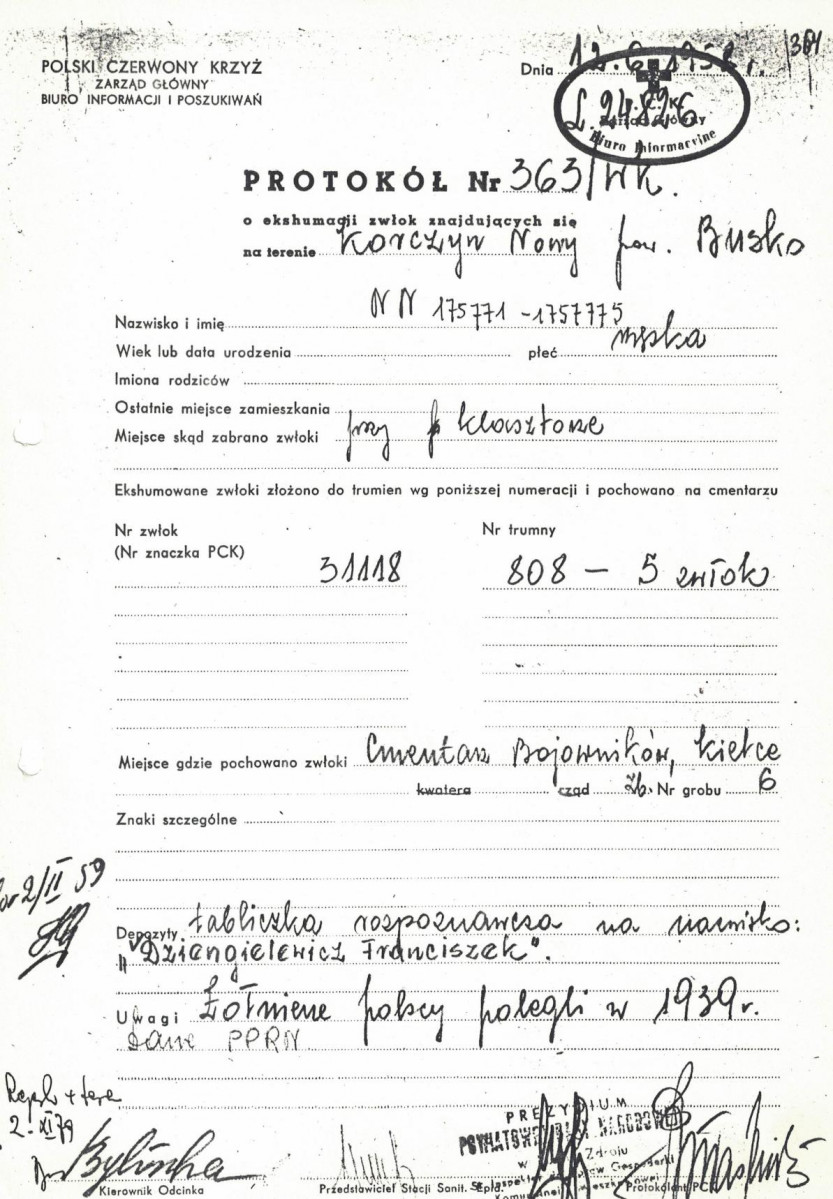 384
POLSKI CZERWONY KRZYŻ
ZARZĄD GŁÓWNY
BIURO INFORMACJI I POSZUKIWAŃ
Dnia 12.6.1958 r.
L. 24826
Biuro Informacyjne
PROTOKÓŁ Nr 363/WK.
o ekshumacji zwłok znajdujących się
na terenie Korczyn Nowy pow. Busko
Nazwisko i imię NN 175771 - 1757775
Wiek lub data urodzenia płeć męska
Imiona rodziców
Ostatnie miejsce zamieszkania
Miejsce skąd zabrano zwłoki przy klasztorze
Ekshumowane zwłoki złożono do trumien wg poniższej numeracji i pochowano na cmentarzu
Nr zwłok Nr trumny
(Nr znaczka PCK)
31118 808 - 5 zwłok
Miejsce gdzie pochowano zwłoki Cmentarz Bojowników, Kielce
kwatera rząd zb. Nr grobu 6
Znaki szczególne
2/II 59
Depozyty tabliczka rozpoznawcza na nazwisko:
"Dziengielewicz Franciszek".
Uwagi Żołnierze polscy polegli w 1939 r.
Dane PPRN
2-XI 79
PREZYDIUM
POWIATOWEJ RADY NARODOWEJ
w Zdroju
Bylinka
Kierownik Odcinka Przedstawiciel Stacji Sanit. Epid. Protokolant PCK